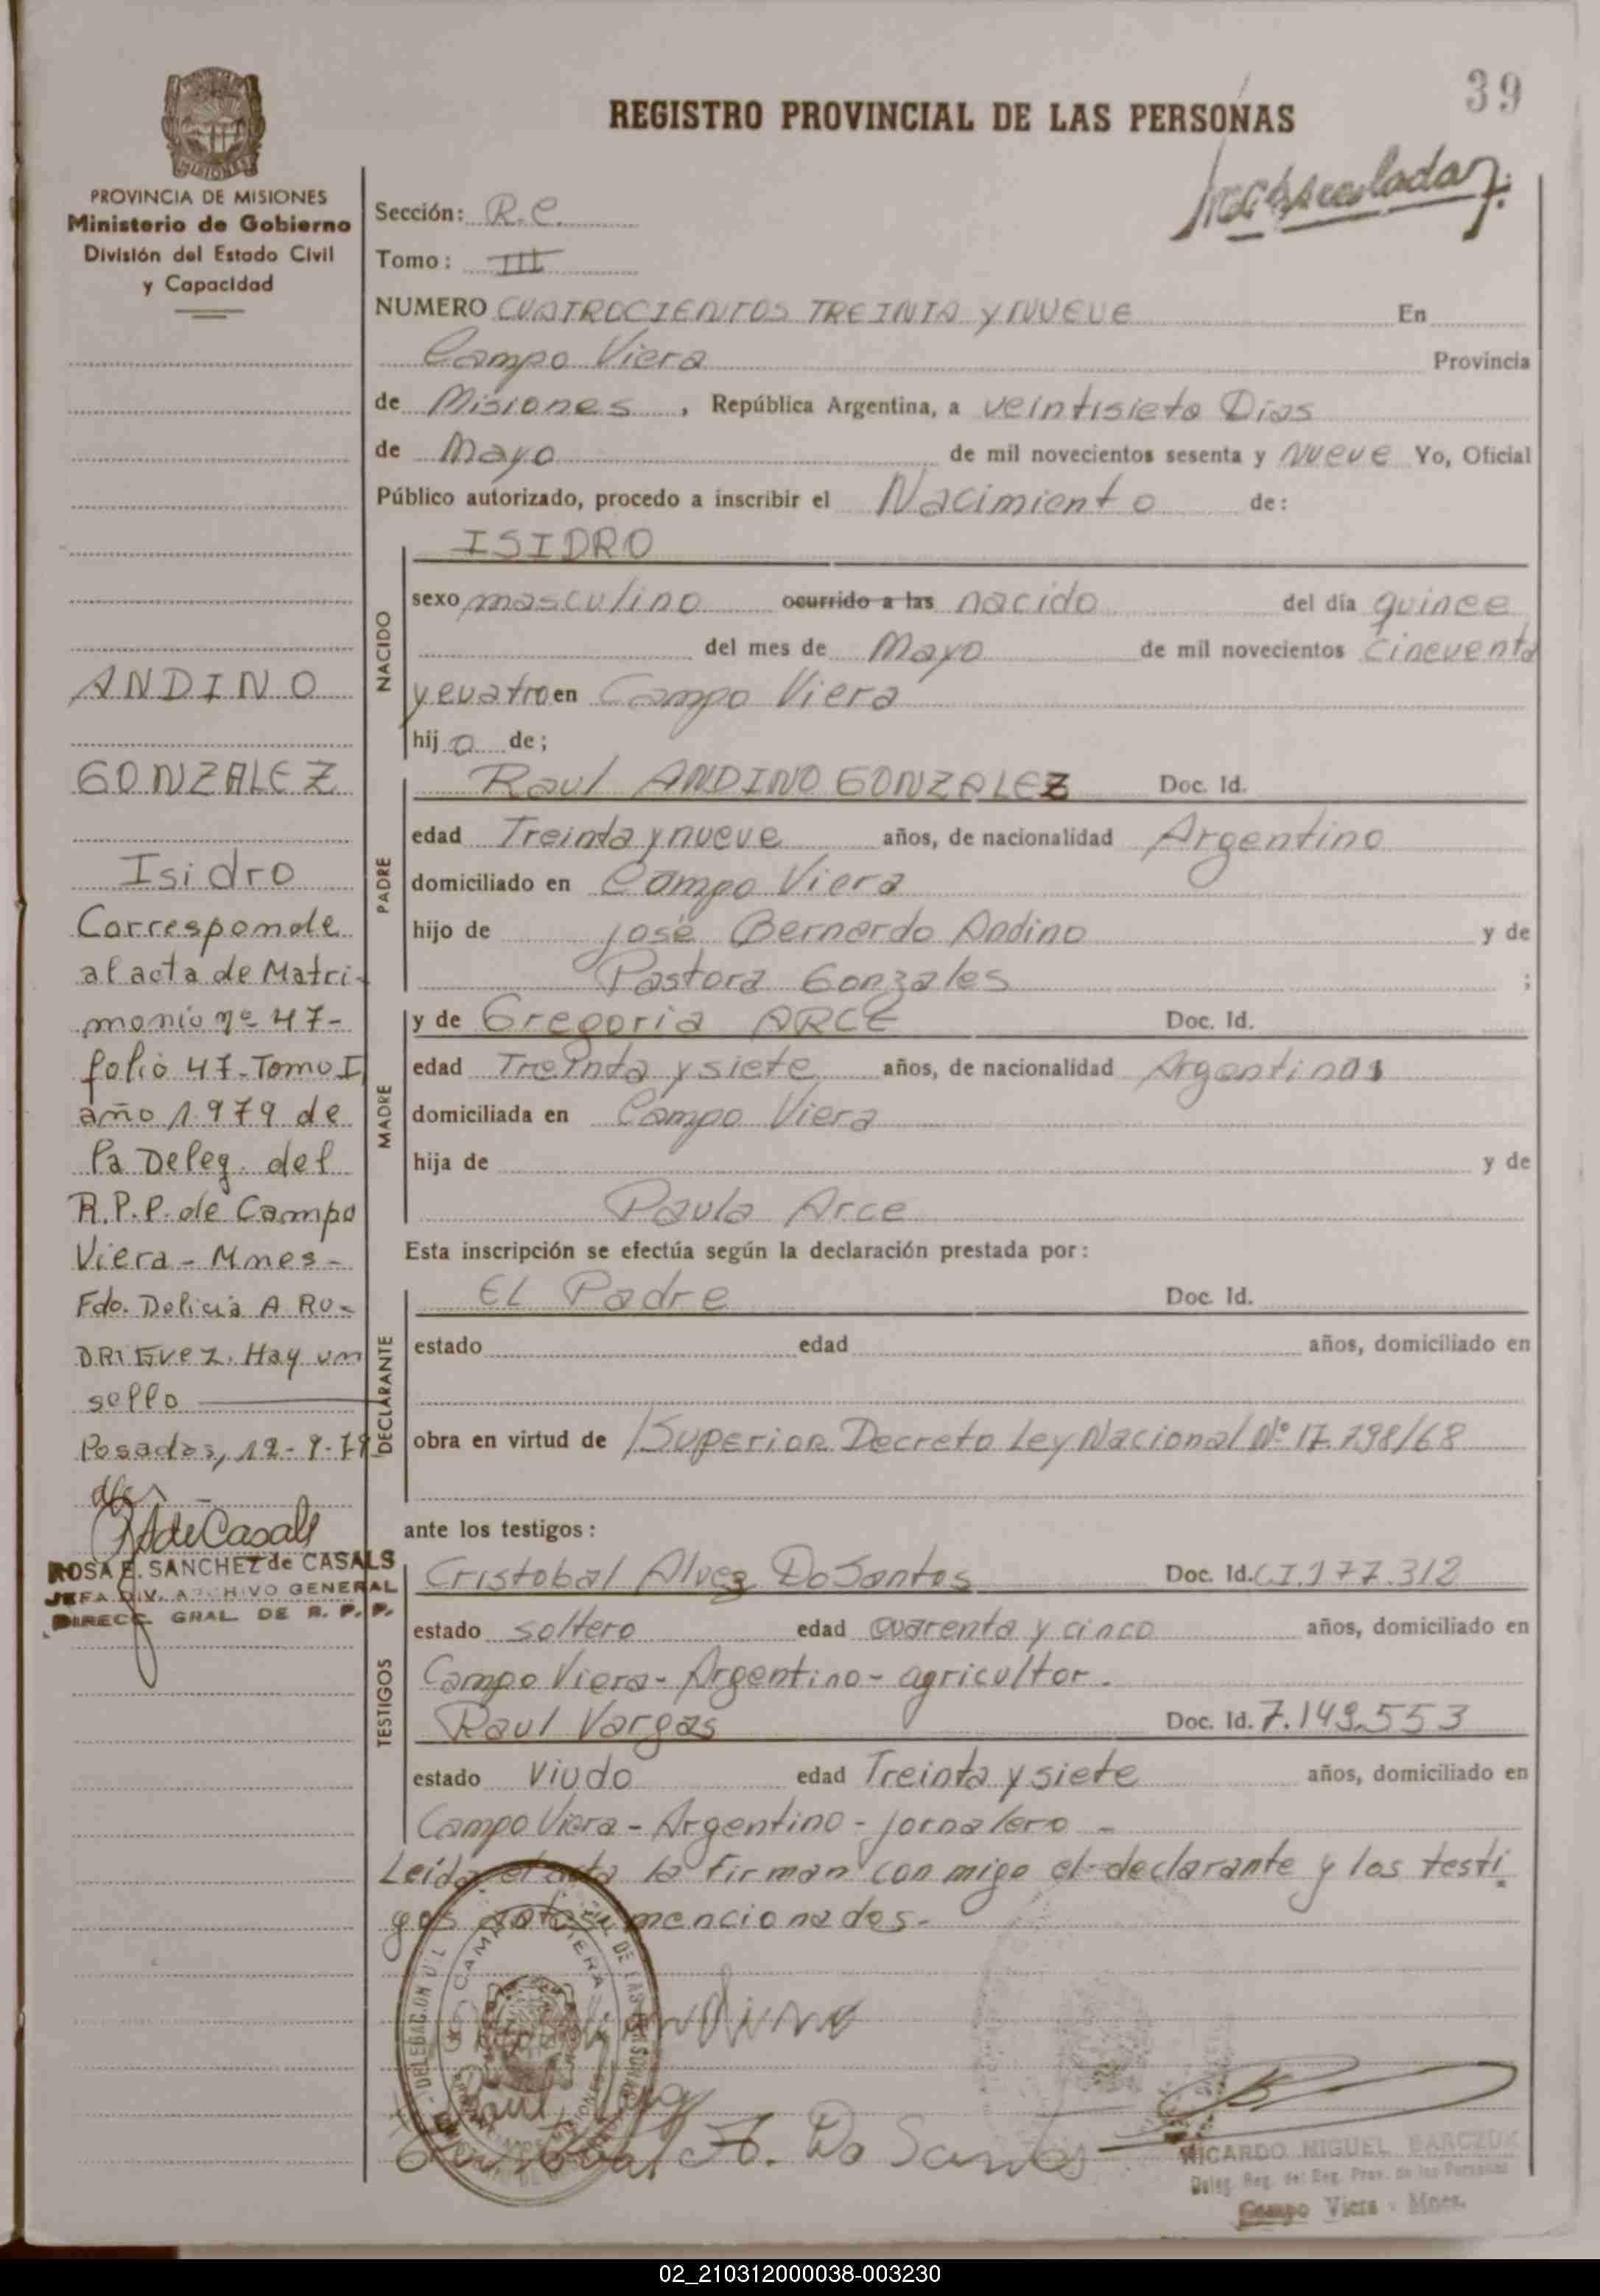 39
REGISTRO PROVINCIAL DE LAS PERSONAS
MISIONES
PROVINCIA DE MISIONES
Ministerio de Gobierno
División del Estado Civil
y Capacidad
ANDINO
GONZALEZ
Isidro
Corresponde
al acta de Matri-
monio nº 47-
folio 47-Tomo I
año 1.979 de
la Deleg. del
R.P.P. de Campo
Viera - Mnes-
Fdo. Delicia A RO-
DRIGUEZ. Hay un
sello
Posadas, 12-9-79
ROSA E. SANCHEZ de CASALS
JEFA DIV. ARCHIVO GENERAL
DIRECC. GRAL. DE R. P. P.
Sección: R.C.
Tomo: III
NUMERO CUATROCIENTOS TREINTA y NUEVE En
Campo Viera Provincia
de Misiones, República Argentina, a veintisiete Dias
de Mayo de mil novecientos sesenta y NUEVE Yo, Oficial
Público autorizado, procedo a inscribir el Nacimiento de:
NACIDO
ISIDRO
sexo masculino ocurrido a las nacido del día quince
del mes de Mayo de mil novecientos cincuenta
y cuatro en Campo Viera
hijo de;
PADRE
Raul ANDINO GONZALEZ Doc. Id.
edad Treinta y nueve años, de nacionalidad Argentino
domiciliado en Campo Viera
hijo de José Bernardo Andino y de
Pastora Gonzales ;
MADRE
y de Gregoria ARCE Doc. Id.
edad Treinta y siete años, de nacionalidad Argentina
domiciliada en Campo Viera
hija de y de
Paula Arce
Esta inscripción se efectúa según la declaración prestada por:
DECLARANTE
EL Padre Doc. Id.
estado edad años, domiciliado en
obra en virtud de Superior Decreto Ley Nacional Nº 17.798/68
ante los testigos:
TESTIGOS
Cristobal Alvez DoSantos Doc. Id. C.I.177.312
estado soltero edad cuarenta y cinco años, domiciliado en
Campo Viera- Argentino- agricultor.
Raul Vargas Doc. Id. 7.149.553
estado Viudo edad Treinta y siete años, domiciliado en
Campo Viera - Argentino - jornalero -
Leida el acta la Firman con migo el declarante y los testi
gos antes mencionados.-
CAMPO VIERA
Andino
Cristobal A. Do Santos
RICARDO MIGUEL BARCZUK
Deleg. Reg. del Reg. Prov. de las Personas
Campo Viera - Mnes.
02_210312000038-003230